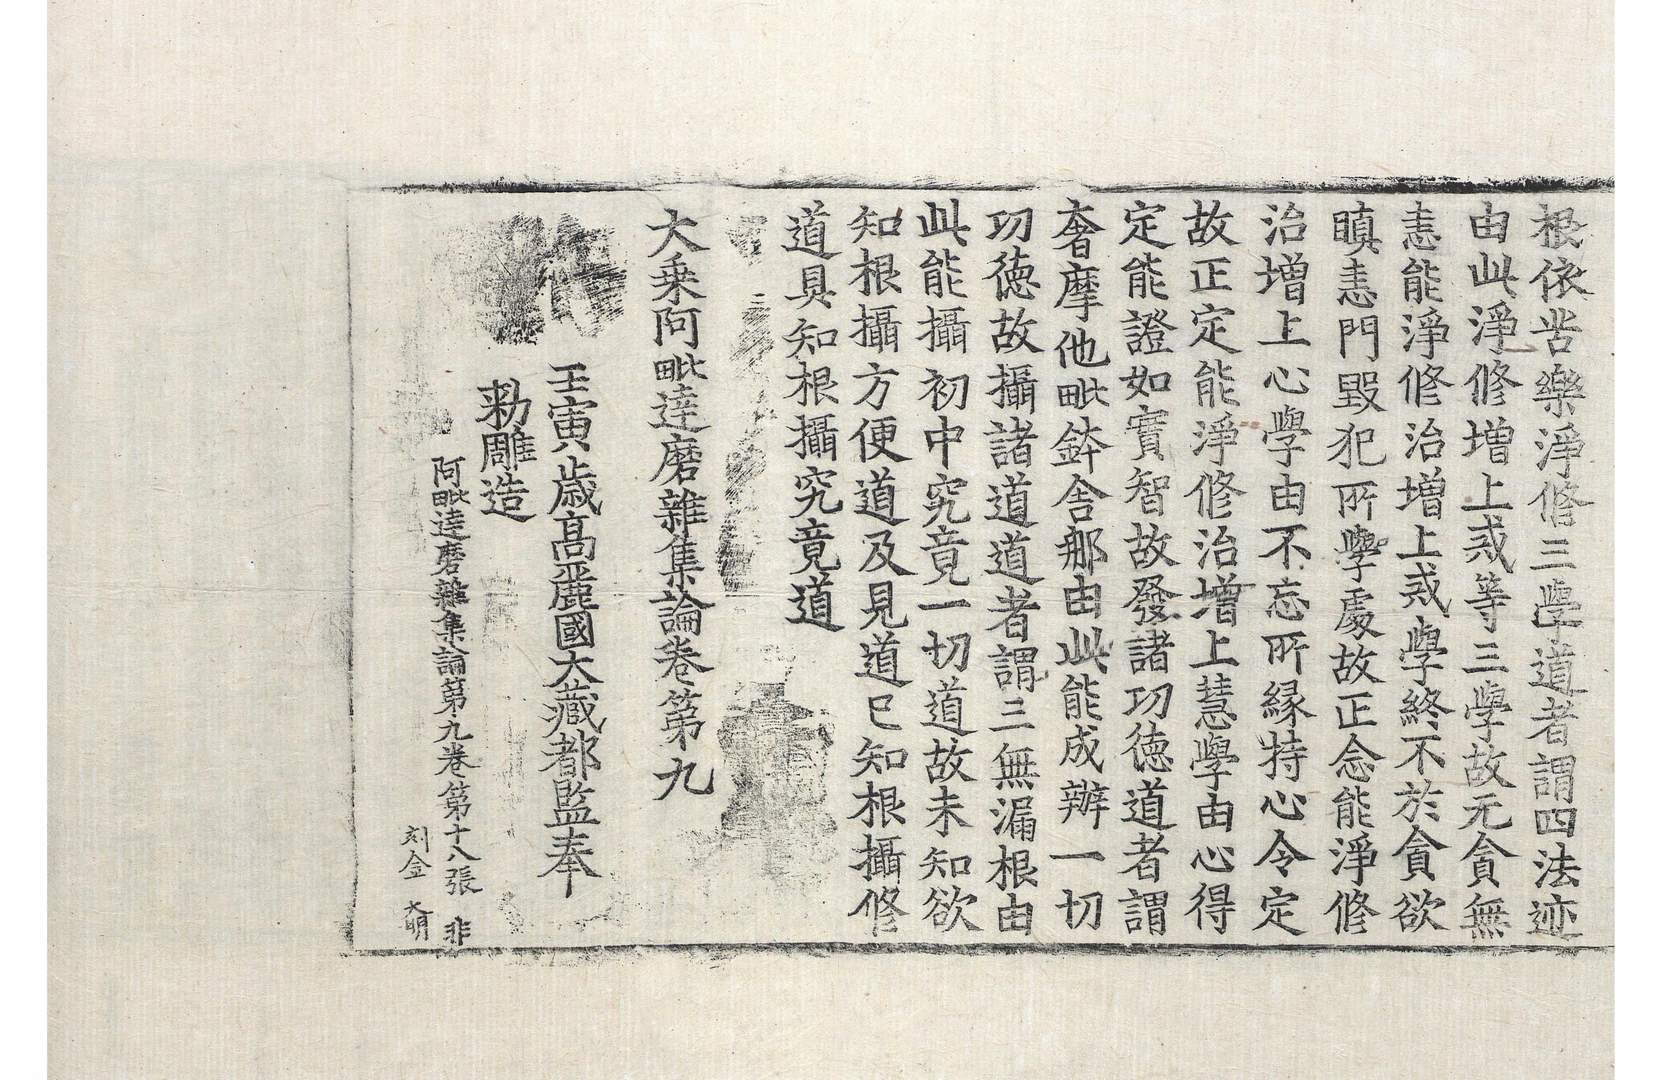 根依苦樂淨修三學道者謂四法迹
由此淨修增上戒等三學故无貪無
恚能淨修治增上戒學終不於貪欲
瞋恚門毀犯所學處故正念能淨修
治增上心學由不忘所緣持心令定
故正定能淨修治增上慧學由心得
定能證如實智故發諸功德道者謂
奢摩他毗鉢舍那由此能成辦一切
功德故攝諸道道者謂三無漏根由
此能攝初中究竟一切道故未知欲
知根攝方便道及見道已知根攝修
道具知根攝究竟道
大乘阿毗達磨雜集論卷第九
壬寅歲高麗國大藏都監奉
勑雕造
阿毗達磨雜集論第九卷第十八張 非
刻金 大明